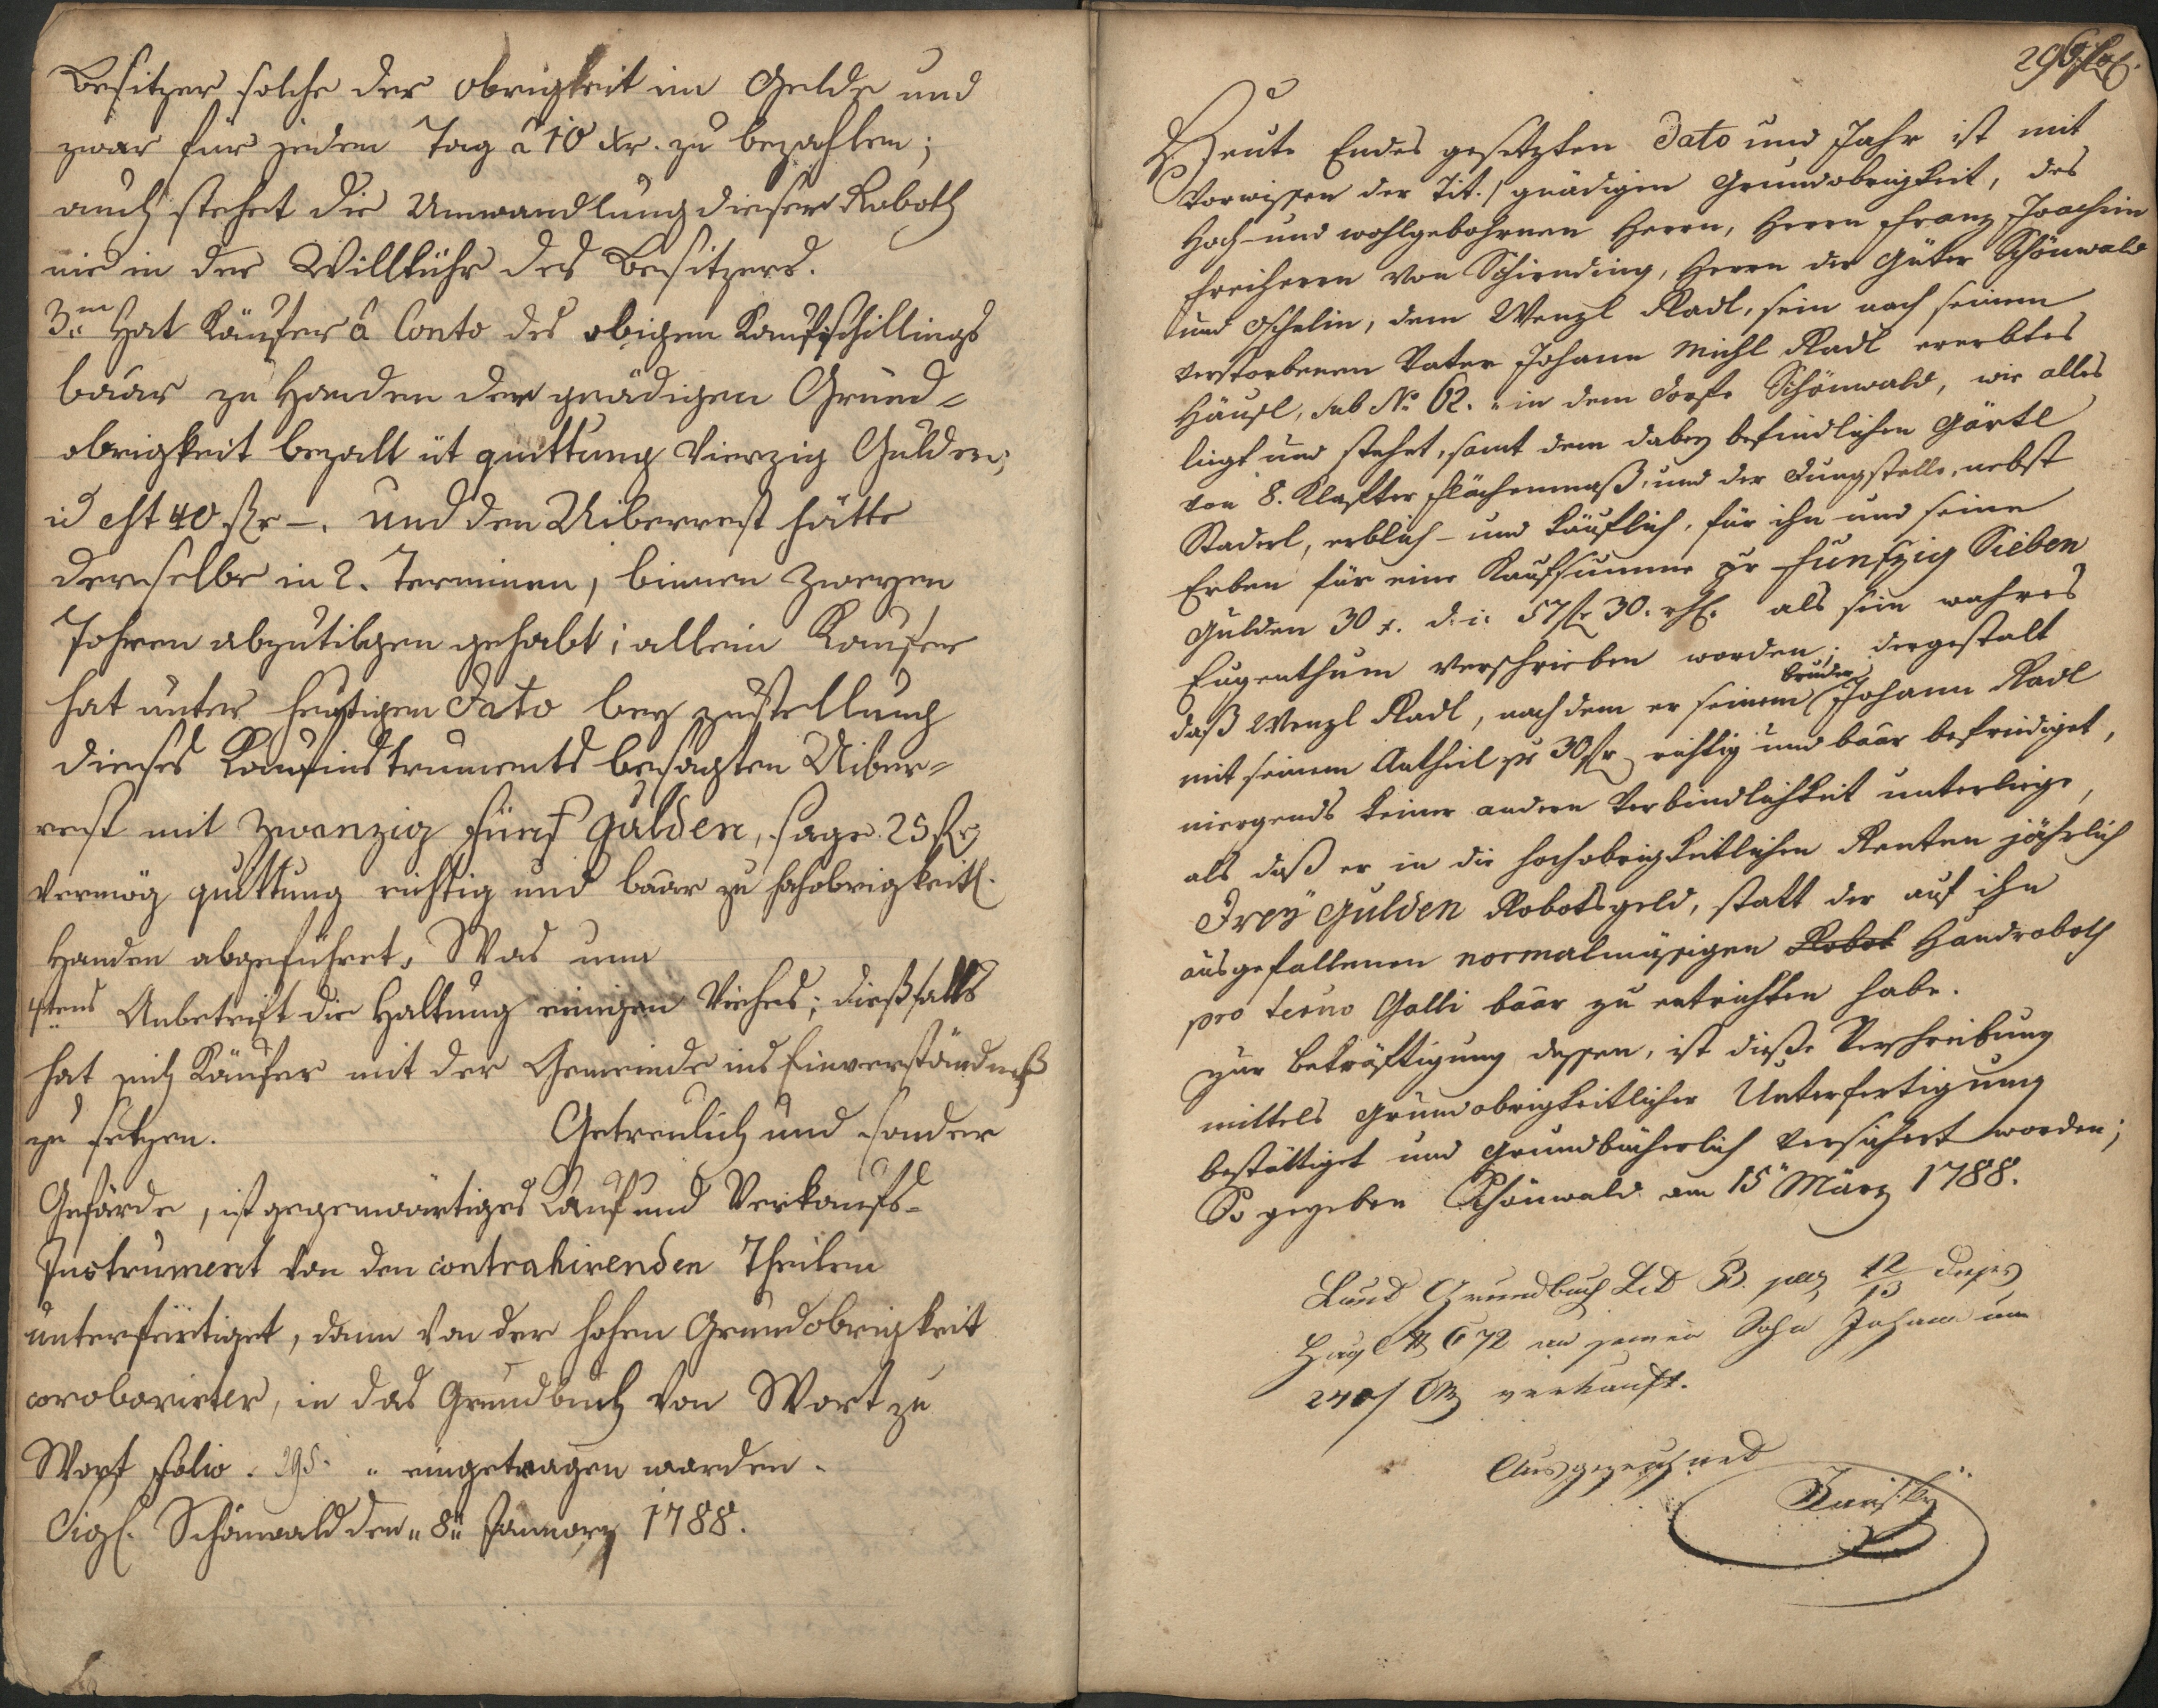 Besitzer solche der Obrigkeit im Gelde und
zwar für jeden Tag a 10 Xr. zu bezahlen;
auch stehet die Umwandlung dieser Roboth
nie in der Willkühr des Besitzers.
3. Hat Käufer â Conto des obigen Kaufschillings
baar zu Handen der gnädigen Grund=
obrigkeit bezalt ut quittung Vierzig Gulden,
id est 40 fr –. und den Uiberrest hätte
derselbe in 2. Terminen, binnen zweyen
Jahren abzutilgen gehabt; allein Kaufer
hat unter heutigem Dato bey zustellung
dieses Kaufinstruments besagten Uiber=
rest mit zwanzig fünf gulden, sage 25 fr
vermög quittung richtig und baar zu hochobrigkeitl.
Handen abgeführet. Was nun
4tens Anbetrift die Haltung einigen Viehes; dießfalls
hat sich Käufer mit der Gemeinde ins Einverständniß
zu setzen. Getreulich und sonder
Gefärde, ist gegenwärtiges Kauf und Verkaufs=
Instrument von den contrahirenden Theilen
unterfertiget, dann von der hohen Grundobrigkeit
coroborirter, in das Grundbuch von Wort zu
Wort folio . 295. " eingetragen worden.
Sigl. Schönwald den " 8ⁿ January 1788.
296
Heute Endes gesetzten Dato und Jahr ist mit
Vorwissen der Tit./ gnädigen Grundobrigkeit, des
Hoch- und wohlgebohrnen Herrn, Herrn Franz Joachim
Freiherrn von Schirnding, Herrn der Güter Schönwald
und Oschelin, dem Wenzl Radl, sein nach seinem
verstorbenen Vater Johann Michl Radl ererbtes
Häusl, sub No 62. " in dem Dorfe Schönwald, wie alles
liegt und stehet, samt dem dabey befindlichen Gärtl
von 8. Klafter Flächenmaß, und der Dungstelle, nebst
Staderl, erblich- und käuflich, für ihn und seine
Erben für eine Kaufsumme pr funfzig Sieben
Gulden 30 x. d. i: 57 fr 30. als sein wahres
Eugenthum verschrieben worden; dergestalt
daß Wenzl Radl, nach dem er seinem bruder Johann Radl
mit seinem Antheil pr 30 fr richtig und baar befriediget,
niergends keiner andern Verbindlichkeit unterliege,
als daß er in die hochobrigkeitlichen Renten jährlich
Drey Gulden Robotsgeld, statt der auf ihn
ausgefallenen normalmäsigen Robot Handroboth
pro termo Galli baar zu entrichten habe.
zur bekräftigung dessen, ist diese Verschreibung
mittels grundobrigkeitlicher Unterfertigung
bestättiget und grundbücherlich versichert worden;
So gegeben Schönwald am 15ⁿ März 1788.
Laut Grundbuch Lit B. pag 12/13 dieses
672 an seinen Sohn Johann um
240 f verkauft.
Ausgezeichnet